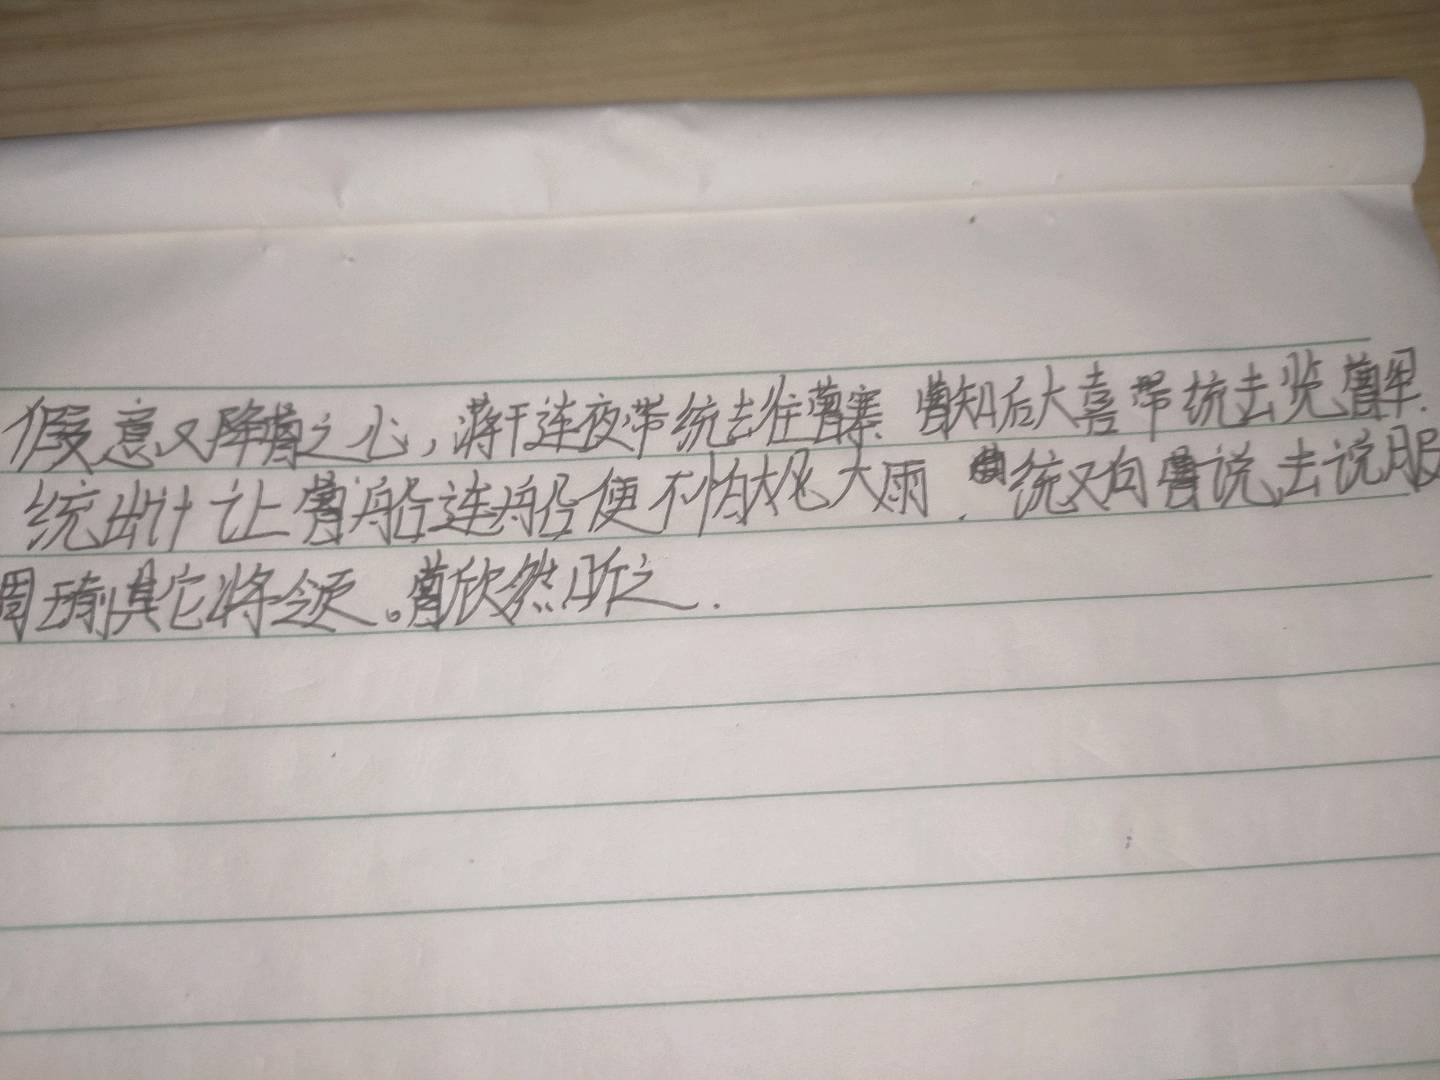 假意又降曹之心,蒋干连夜带统去往曹寨.曹知后大喜带统去览曹军.
统出计让曹船连船便不怕大风大雨.统又向曹说去说服
周瑜其它将领。曹欣然听之.